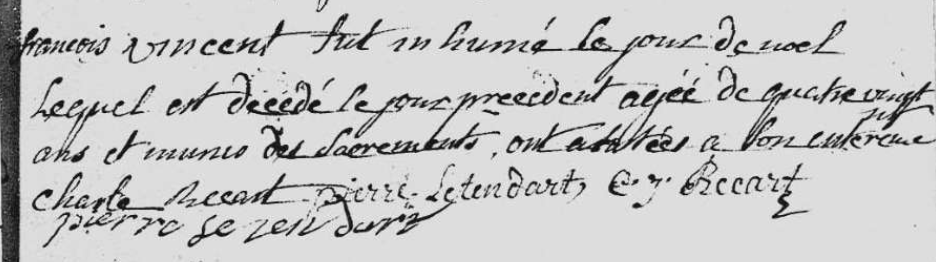 francois vincent fut inhumé le jour de noel
Lequel est decedé le jour precedent ageé de quatre vingt
ans et munis des Sacrements, ont asistées a son enterem
charle Recart pierre Letendart, C. J. Recart
pierre le ten dart